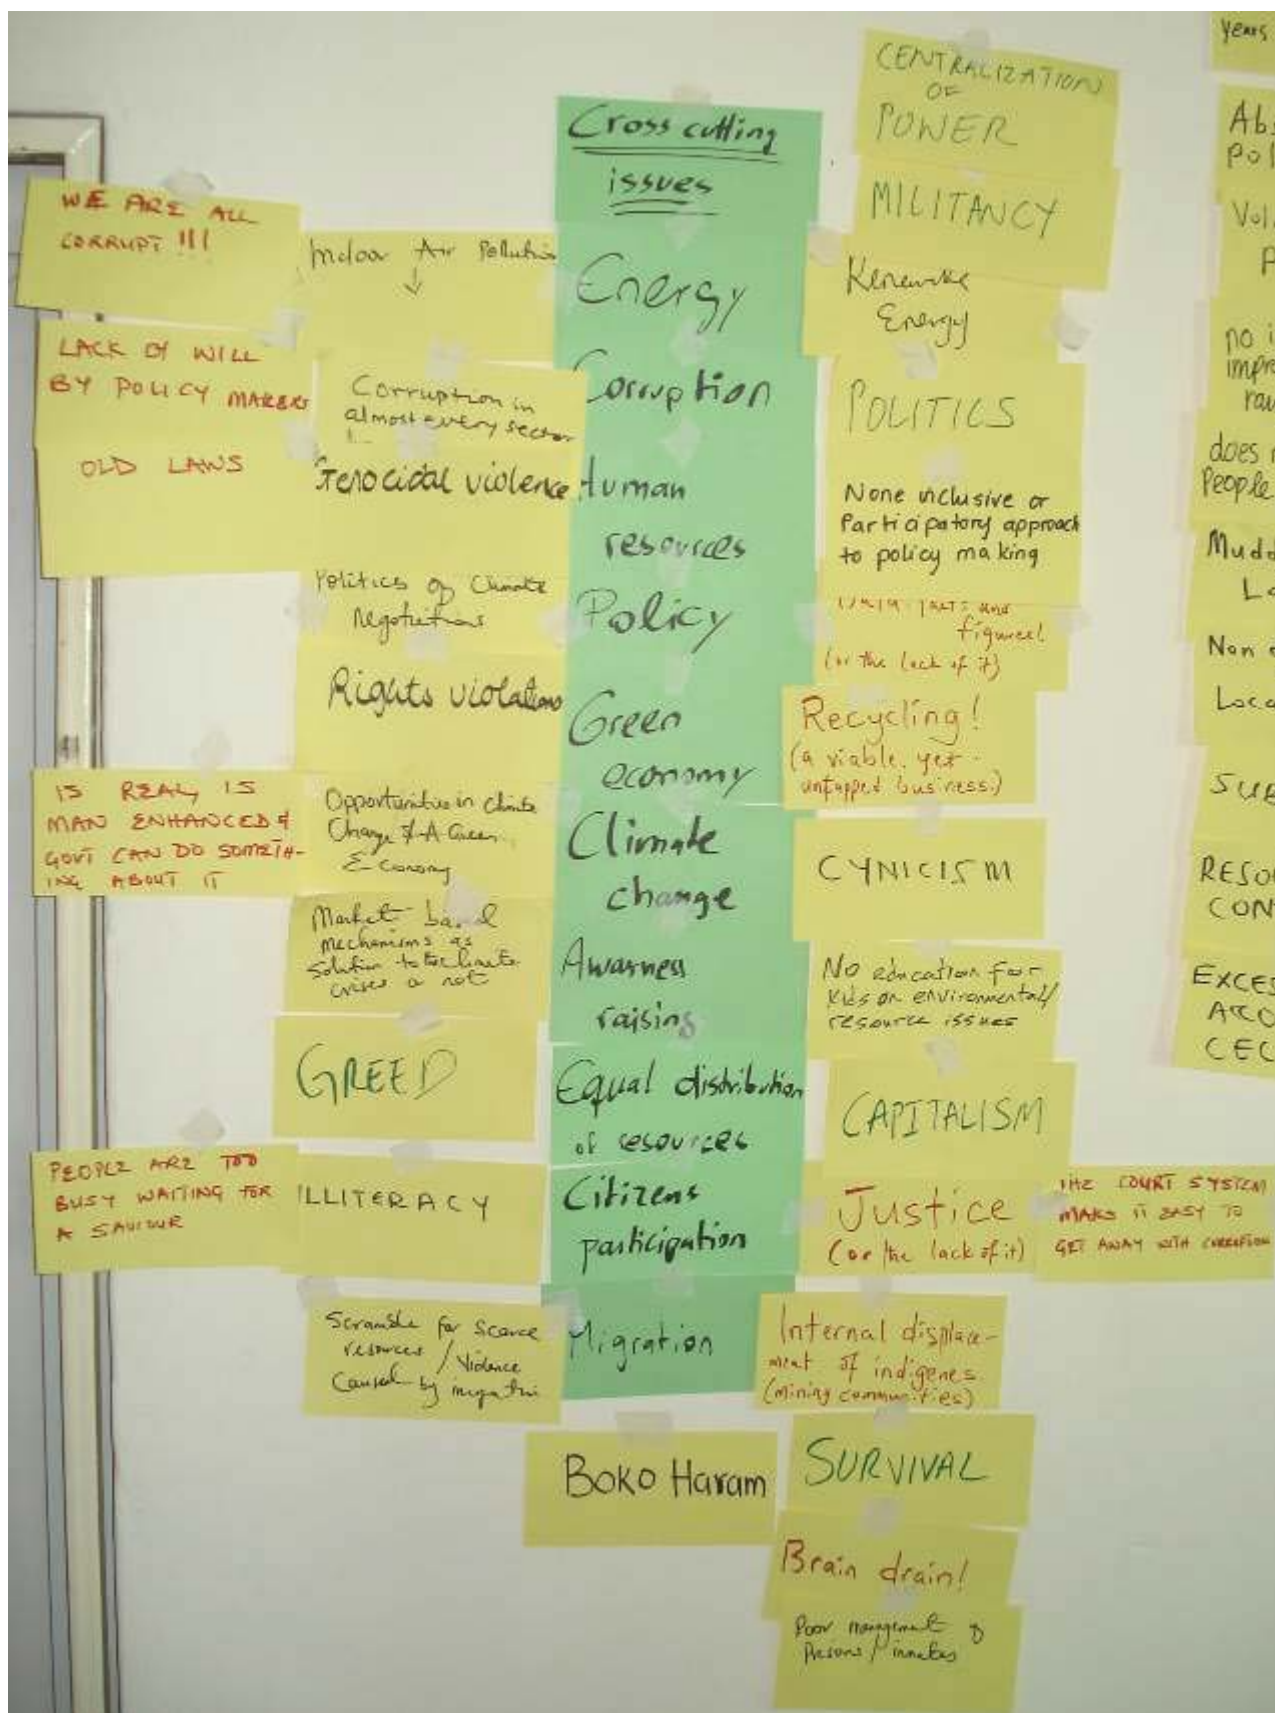 WE ARE ALL
CORRUPT !!!
LACK OF WILL
BY POLICY MAKERS
OLD LAWS
IS REAL, IS
MAN ENHANCED &
GOVT CAN DO SOMETH-
ING ABOUT IT
PEOPLE ARE TOO
BUSY WAITING FOR
A SAVIOUR
Indoor Air Pollution
Corruption in
almost every sector
Genocidal violence
Politics of Climate
Negotiations
Rights violations
Opportunities in Climate
Change & A Green
Economy
Market based
mechanisms as
solution to the climate
crises a not
GREED
ILLITERACY
Scramble for Scarce
resources / Violence
Caused by
Cross cutting
issues
Energy
Corruption
Human
resources
Policy
Green
economy
Climate
change
Awarness
raising
Equal distribution
of resources
Citizens
participation
Migration
Boko Haram
CENTRALIZATION
OF
POWER
MILITANCY
Energy
POLITICS
None inclusive or
Participatory approach
to policy making
figures!
(or the lack of it)
Recycling!
(a viable, yet
untapped business.)
CYNICISM
No education for
kids on environmental/
resource issues
CAPITALISM
Justice
(or the lack of it)
THE COURT SYSTEM
MAKS IT EASY TO
GET AWAY WITH CORRUPTION
Internal displace-
ment of indigenes
(mining communities)
SURVIVAL
Brain drain!
Poor management of
Prisons / inmates
years
does
People
Non